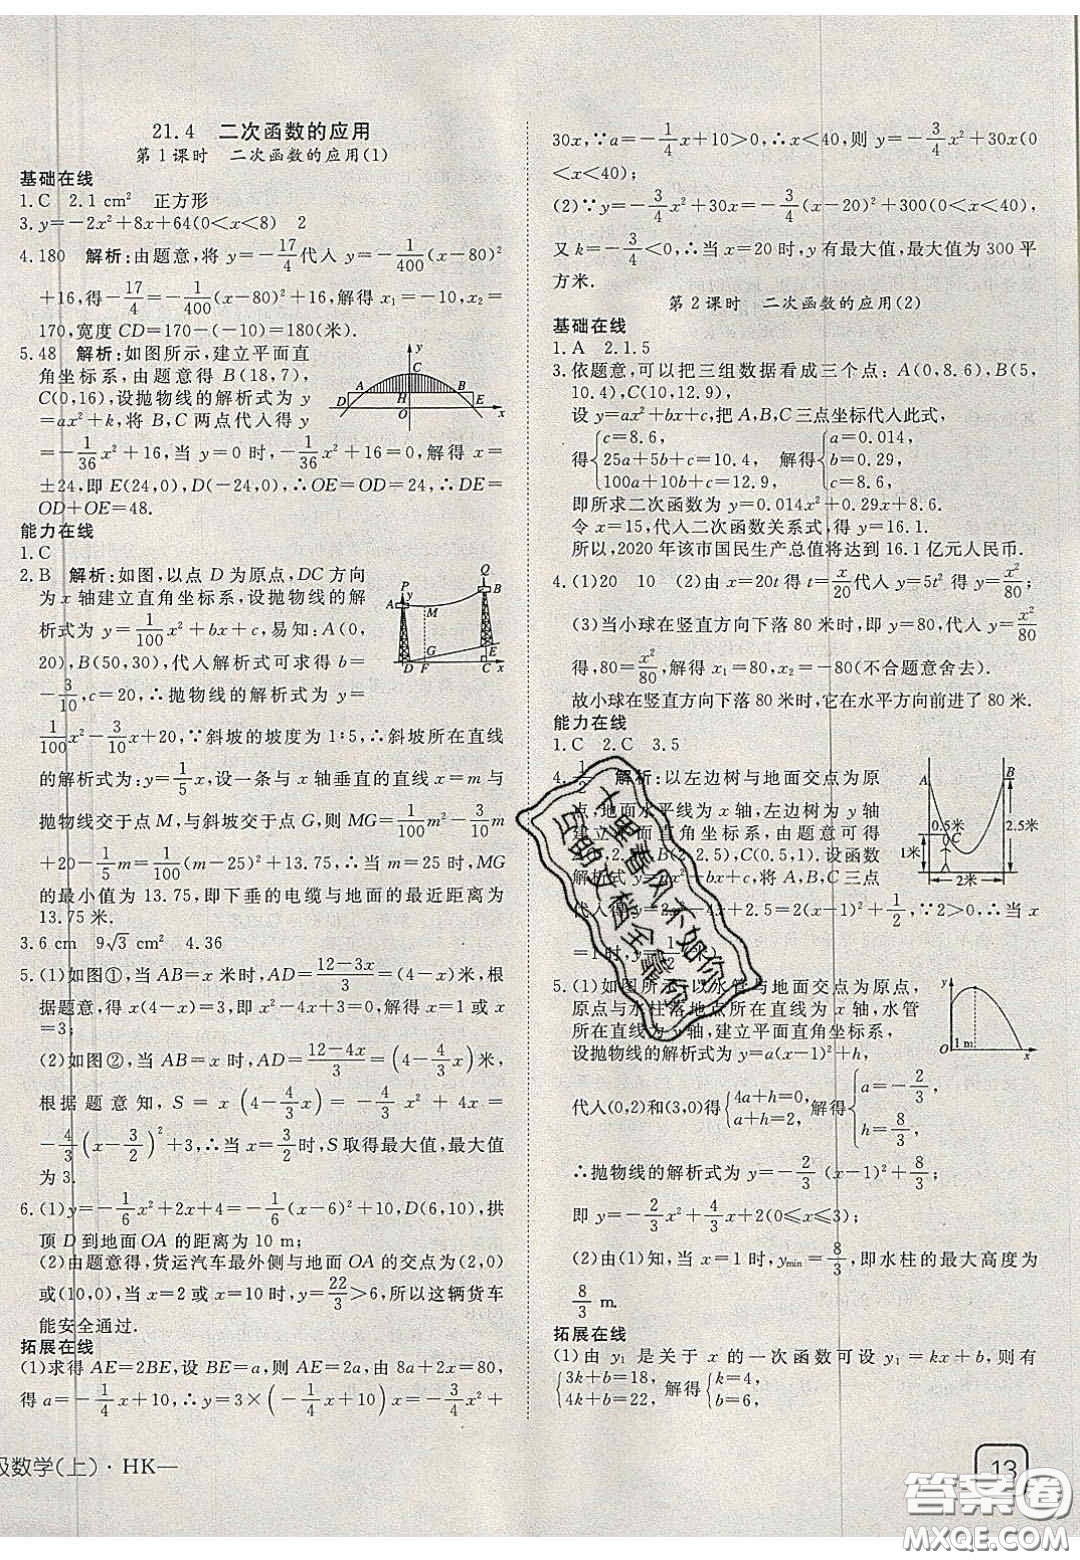 21.4 二次函数的应用
第1课时 二次函数的应用(1)
基础在线
1.C 2.1 cm² 正方形
3.y=-2x²+8x+64(0<x<8) 2
4.180 解析:由题意,将 y=-17/4代入 y=-1/400(x-80)²
+16,得-17/4=-1/400(x-80)²+16,解得 x₁=-10,x₂=
170,宽度 CD=170-(-10)=180(米).
5.48 解析:如图所示,建立平面直
角坐标系,由题意得 B(18,7),
C(0,16),设抛物线的解析式为 y
=ax²+k,将 B,C 两点代入得 y
=-1/36x²+16,当 y=0 时,-1/36x²+16=0,解得 x=
±24,即 E(24,0),D(-24,0),∴OE=OD=24,∴DE=
OD+OE=48.
y C A B D H E O x
能力在线
1.C
2.B 解析:如图,以点 D 为原点,DC 方向
为 x 轴建立直角坐标系,设抛物线的解
析式为 y=1/100x²+bx+c,易知:A(0,
20),B(50,30),代入解析式可求得 b=
-3/10,c=20,∴抛物线的解析式为 y=
1/100x²-3/10x+20,∵斜坡的坡度为 1∶5,∴斜坡所在直线
的解析式为:y=1/5x,设一条与 x 轴垂直的直线 x=m 与
抛物线交于点 M,与斜坡交于点 G,则 MG=1/100m²-3/10m
+20-1/5m=1/100(m-25)²+13.75,∴当 m=25 时,MG
的最小值为 13.75,即下垂的电缆与地面的最近距离为
13.75 米.
y P Q A B M G E D F C x
3.6 cm 9√3 cm² 4.36
5.(1)如图①,当 AB=x 米时,AD=12-3x/3=(4-x)米,根
据题意,得 x(4-x)=3,即 x²-4x+3=0,解得 x=1 或 x
=3;
(2)如图②,当 AB=x 时,AD=12-4x/3=(4-4/3x)米,
根据题意知,S=x(4-4/3x)=-4/3x²+4x=
-4/3(x-3/2)²+3,∴当 x=3/2时,S 取得最大值,最大值
为 3.
6.(1)y=-1/6x²+2x+4=-1/6(x-6)²+10,D(6,10),拱
顶 D 到地面 OA 的距离为 10 m;
(2)由题意得,货运汽车最外侧与地面 OA 的交点为(2,0)
或(10,0),当 x=2 或 x=10 时,y=22/3>6,所以这辆货车
能安全通过.
拓展在线
(1)求得 AE=2BE,设 BE=a,则 AE=2a,由 8a+2x=80,
得 a=-1/4x+10,∴y=3×(-1/4x+10)x=-3/4x²+
级数学(上)·HK—
30x,∵a=-1/4x+10>0,∴x<40,则 y=-3/4x²+30x(0
<x<40);
(2)∵y=-3/4x²+30x=-3/4(x-20)²+300(0<x<40),
又 k=-3/4<0,∴当 x=20 时,y 有最大值,最大值为 300 平
方米.
第2课时 二次函数的应用(2)
基础在线
1.A 2.1.5
3.依题意,可以把三组数据看成三个点:A(0,8.6),B(5,
10.4),C(10,12.9),
设 y=ax²+bx+c,把 A,B,C 三点坐标代入此式,
得{c=8.6, 25a+5b+c=10.4, 100a+10b+c=12.9, 解得{a=0.014, b=0.29, c=8.6,
即所求二次函数为 y=0.014x²+0.29x+8.6,
令 x=15,代入二次函数关系式,得 y=16.1.
所以,2020 年该市国民生产总值将达到 16.1 亿元人民币.
4.(1)20 10 (2)由 x=20t 得 t=x/20代入 y=5t² 得 y=x²/80
(3)当小球在竖直方向下落 80 米时,即 y=80,代入 y=x²/80
得,80=x²/80,解得 x₁=80,x₂=-80(不合题意舍去).
故小球在竖直方向下落 80 米时,它在水平方向前进了 80 米.
能力在线
1.C 2.C 3.5
4.1/2 解析:以左边树与地面交点为原
点,地面水平线为 x 轴,左边树为 y 轴
建立平面直角坐标系,
2.5),B(2,2.5),C(0.5,1).设函数
解析式 y=ax²+bx+c,将 A,B,C 三点
代入得 y=2x²-4x+2.5=2(x-1)²+1/2,∵2>0,∴当 x
=1 时,
A B 0.5米 C 1米 2.5米 2米
5.(1)如图所示,以水管与地面交点为原点,
原点与水柱落地点所在直线为 x 轴,水管
所在直线为 y 轴,建立平面直角坐标系,
设抛物线的解析式为 y=a(x-1)²+h,
代入(0,2)和(3,0)得{4a+h=0, a+h=2, 解得{a=-2/3, h=8/3,
∴抛物线的解析式为 y=-2/3(x-1)²+8/3;
即 y=-2/3x²+4/3x+2(0≤x≤3);
(2)由(1)知,当 x=1 时,y_min=8/3,即水柱的最大高度为
8/3 m.
y O 1 m x
拓展在线
(1)由 y₁ 是关于 x 的一次函数可设 y₁=kx+b,则有
{3k+b=18, 4k+b=22, 解得{k=4, b=6,
13
十里春风不如你
互助文档全靠你
答案圈
MXQE.COM